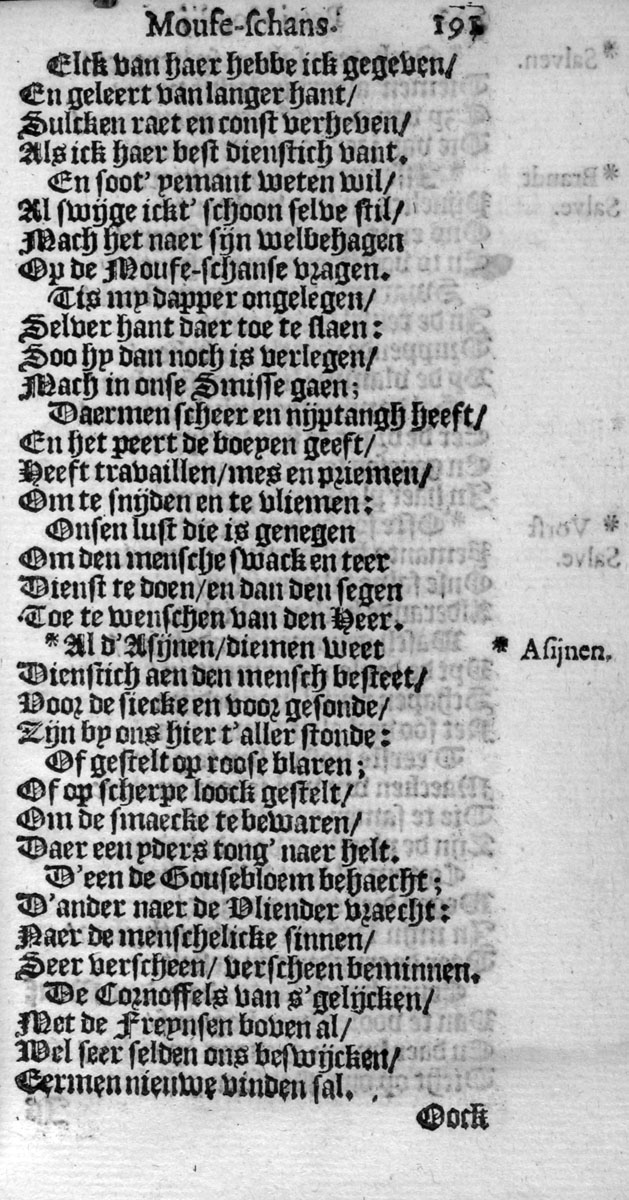 Moufe-schans. 191
Elck van haer hebbe ick gegeven/
En geleert van langer hant/
Sulcken raet en const verheven/
Als ick haer best dienstich vant.
En soot' yemant weten wil/
Al swijge ickt' schoon selve stil/
Mach het naer sijn welbehagen
Op de Moufe-schanse vragen.
Tis my dapper ongelegen/
Selver hant daer toe te slaen:
Soo hy dan noch is verlegen/
Mach in onse Smisse gaen;
Daermen scheer en nijptangh heeft/
En het peert de boeyen geeft/
Heeft travaillen/mes en priemen/
Om te snijden en te vliemen:
Onsen lust die is genegen
Om den mensche swack en teer
Dienst te doen/en dan den segen
Toe te wenschen van den Heer.
*Al d'Asijnen/diemen weet * Asijnen.
Dienstich aen den mensch besteet/
Voor de siecke en voor gesonde/
Zijn by ons hier t'aller stonde:
Of gestelt op roose blaren;
Of op scherpe loock gestelt/
Om de smaecke te bewaren/
Daer een yders tong' naer helt.
D'een de Gousebloem behaecht;
D'ander naer de Vliender vraecht:
Naer de menschelicke sinnen/
Seer verscheen/ verscheen beminnen.
De Cornoffels van s'gelijcken/
Met de Freynsen boven al/
Wel seer selden ons beswijcken/
Eermen nieuwe vinden sal.
Oock